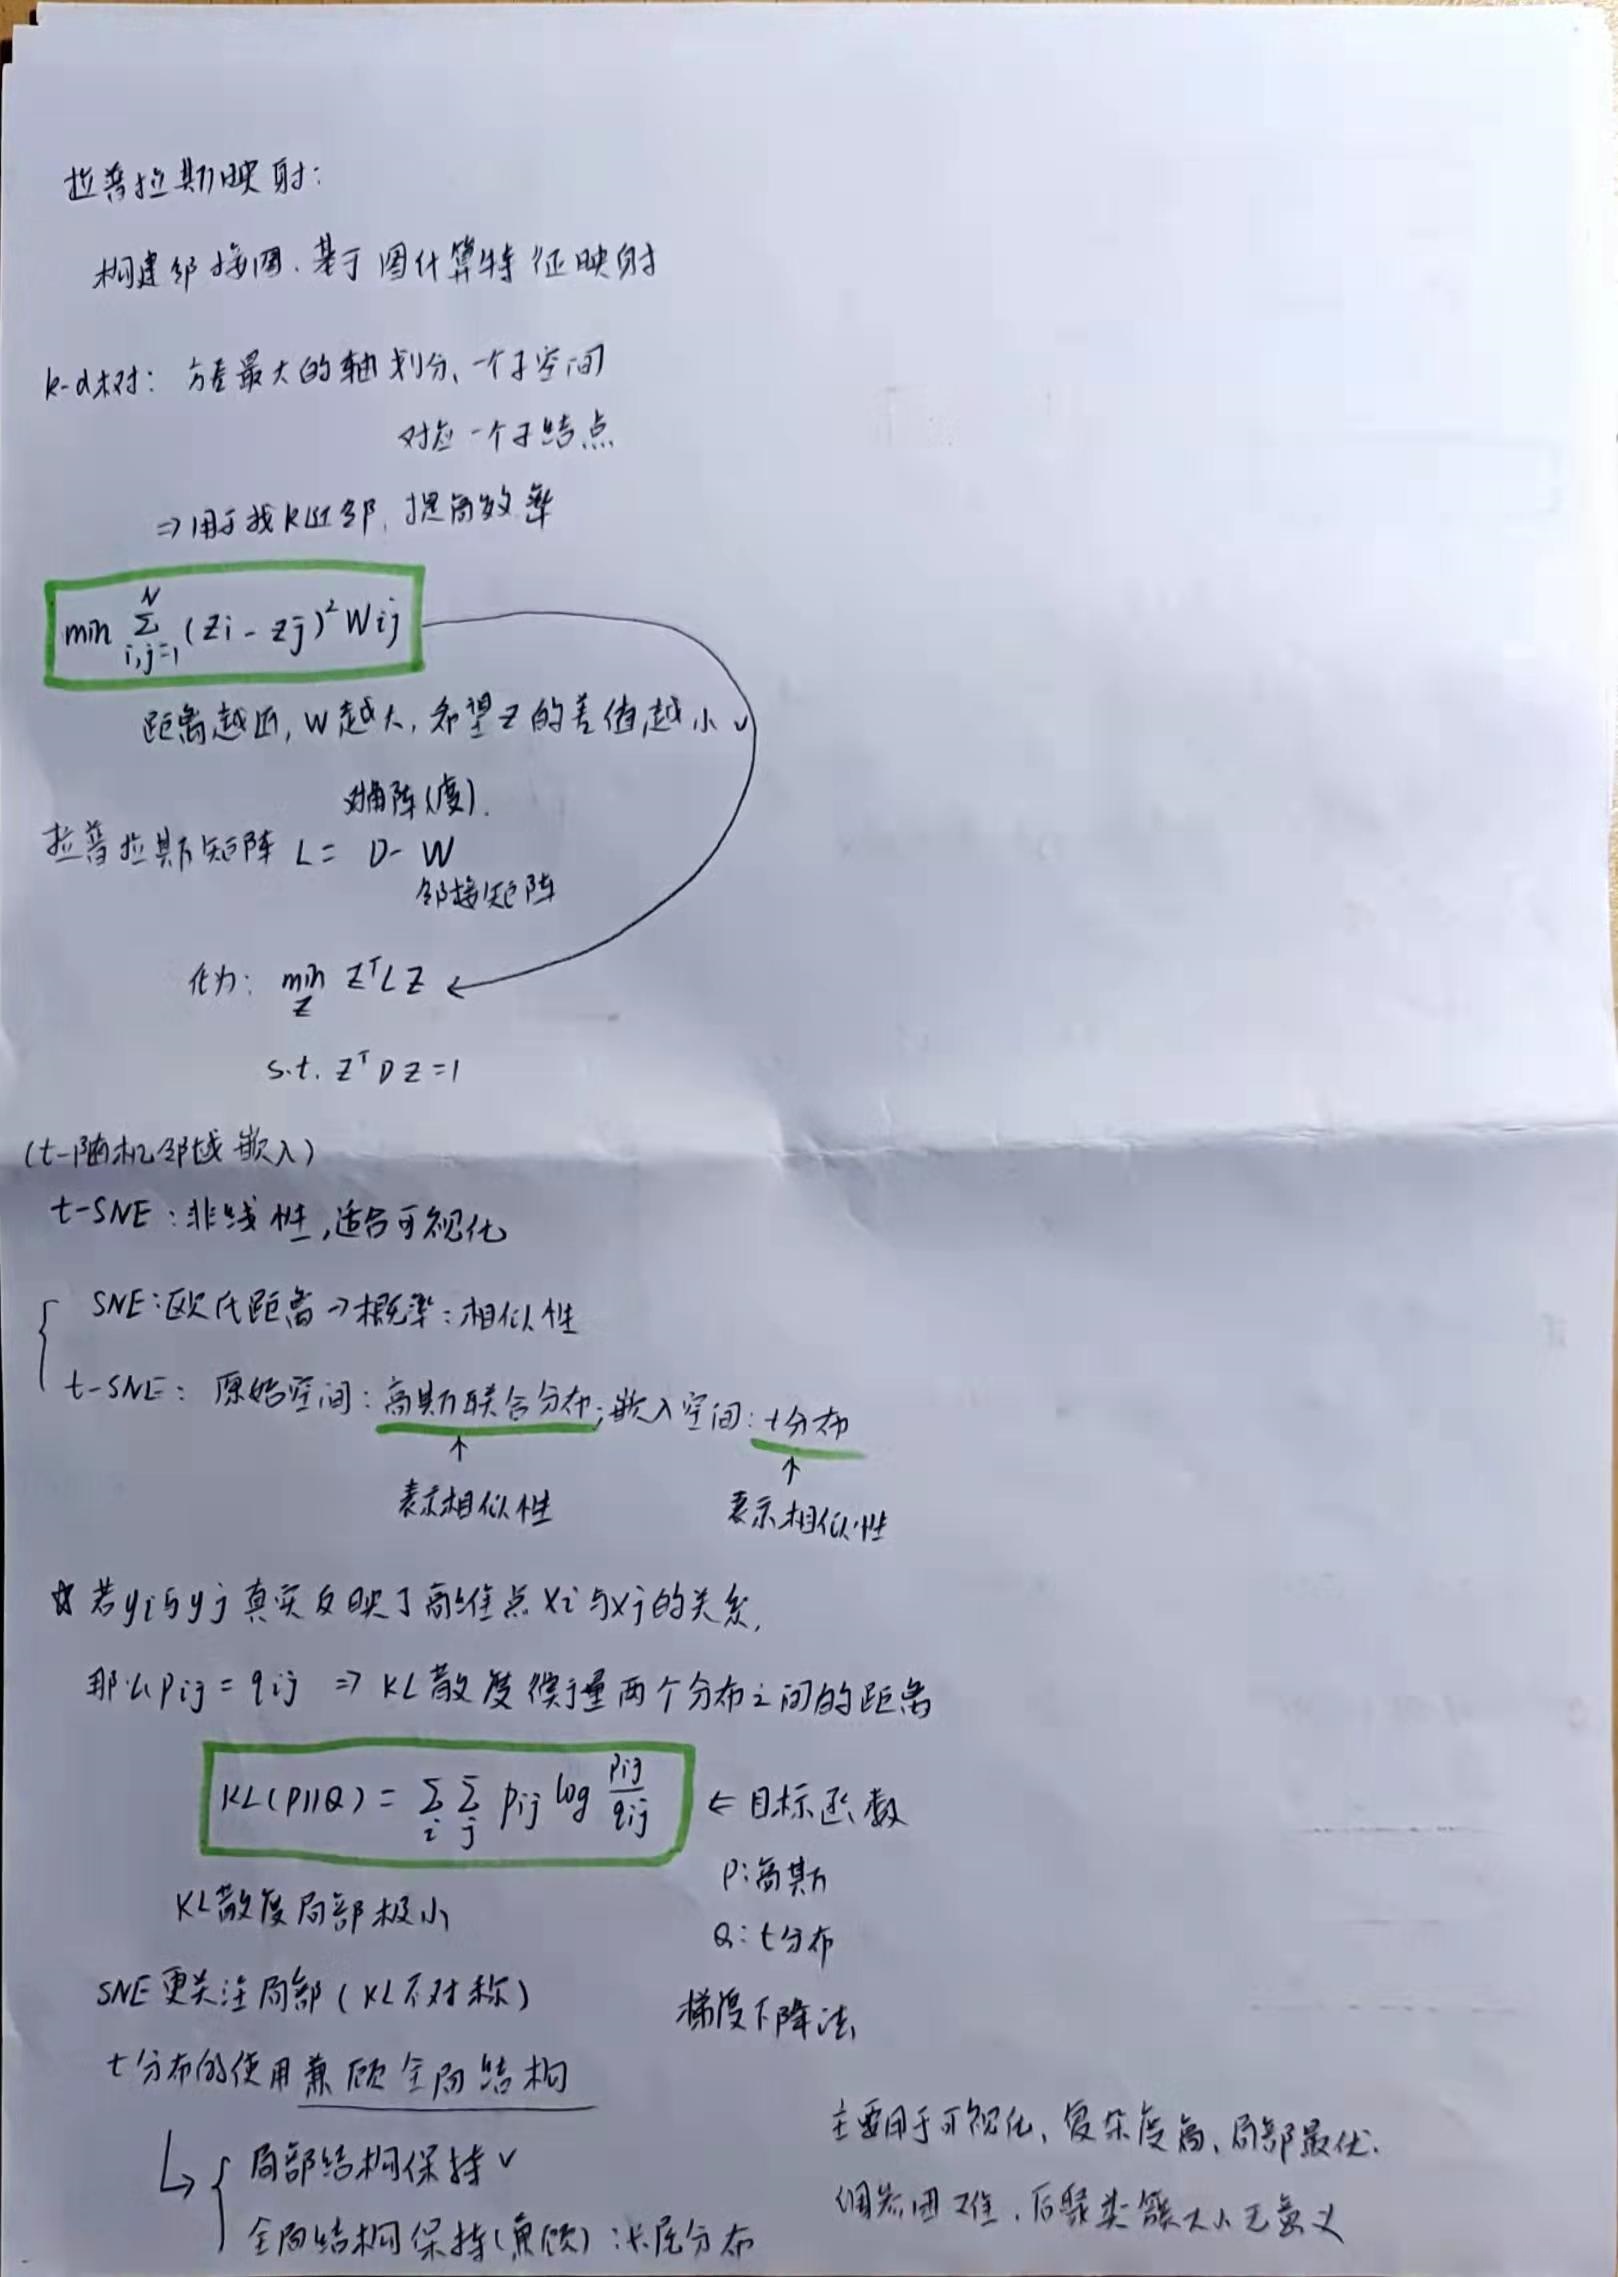 拉普拉斯映射:
构建邻接图、基于图计算特征映射
k-d树: 方差最大的轴划分、一个子空间
对应一个子结点
⇒用于找k近邻,提高效率
min Σ_{i,j=1}^{N} (zi - zj)² Wij
距离越近, W越大, 希望z的差值越小 ✓
对角阵(度).
拉普拉斯矩阵 L = D - W
邻接矩阵
化为: min_Z Z^T L Z ←
s.t. Z^T D Z = 1
(t-随机邻域嵌入)
t-SNE: 非线性,适合可视化
SNE: 欧氏距离→概率: 相似性
t-SNE: 原始空间: 高斯联合分布; 嵌入空间: t分布
↑ ↑
表示相似性 表示相似性
☆ 若yi与yj真实反映了高维点xi与xj的关系,
那么pij = qij ⇒ KL散度衡量两个分布之间的距离
KL(P||Q) = Σ_i Σ_j pij log pij/qij ⇐ 目标函数
P: 高斯
KL散度局部极小
Q: t分布
SNE更关注局部 (KL不对称)
梯度下降法
t分布的使用兼顾全局结构
↳ { 局部结构保持 ✓
全局结构保持(兼顾): 长尾分布
主要用于可视化、复杂度高、局部最优.
调参困难、后聚类簇大小无意义